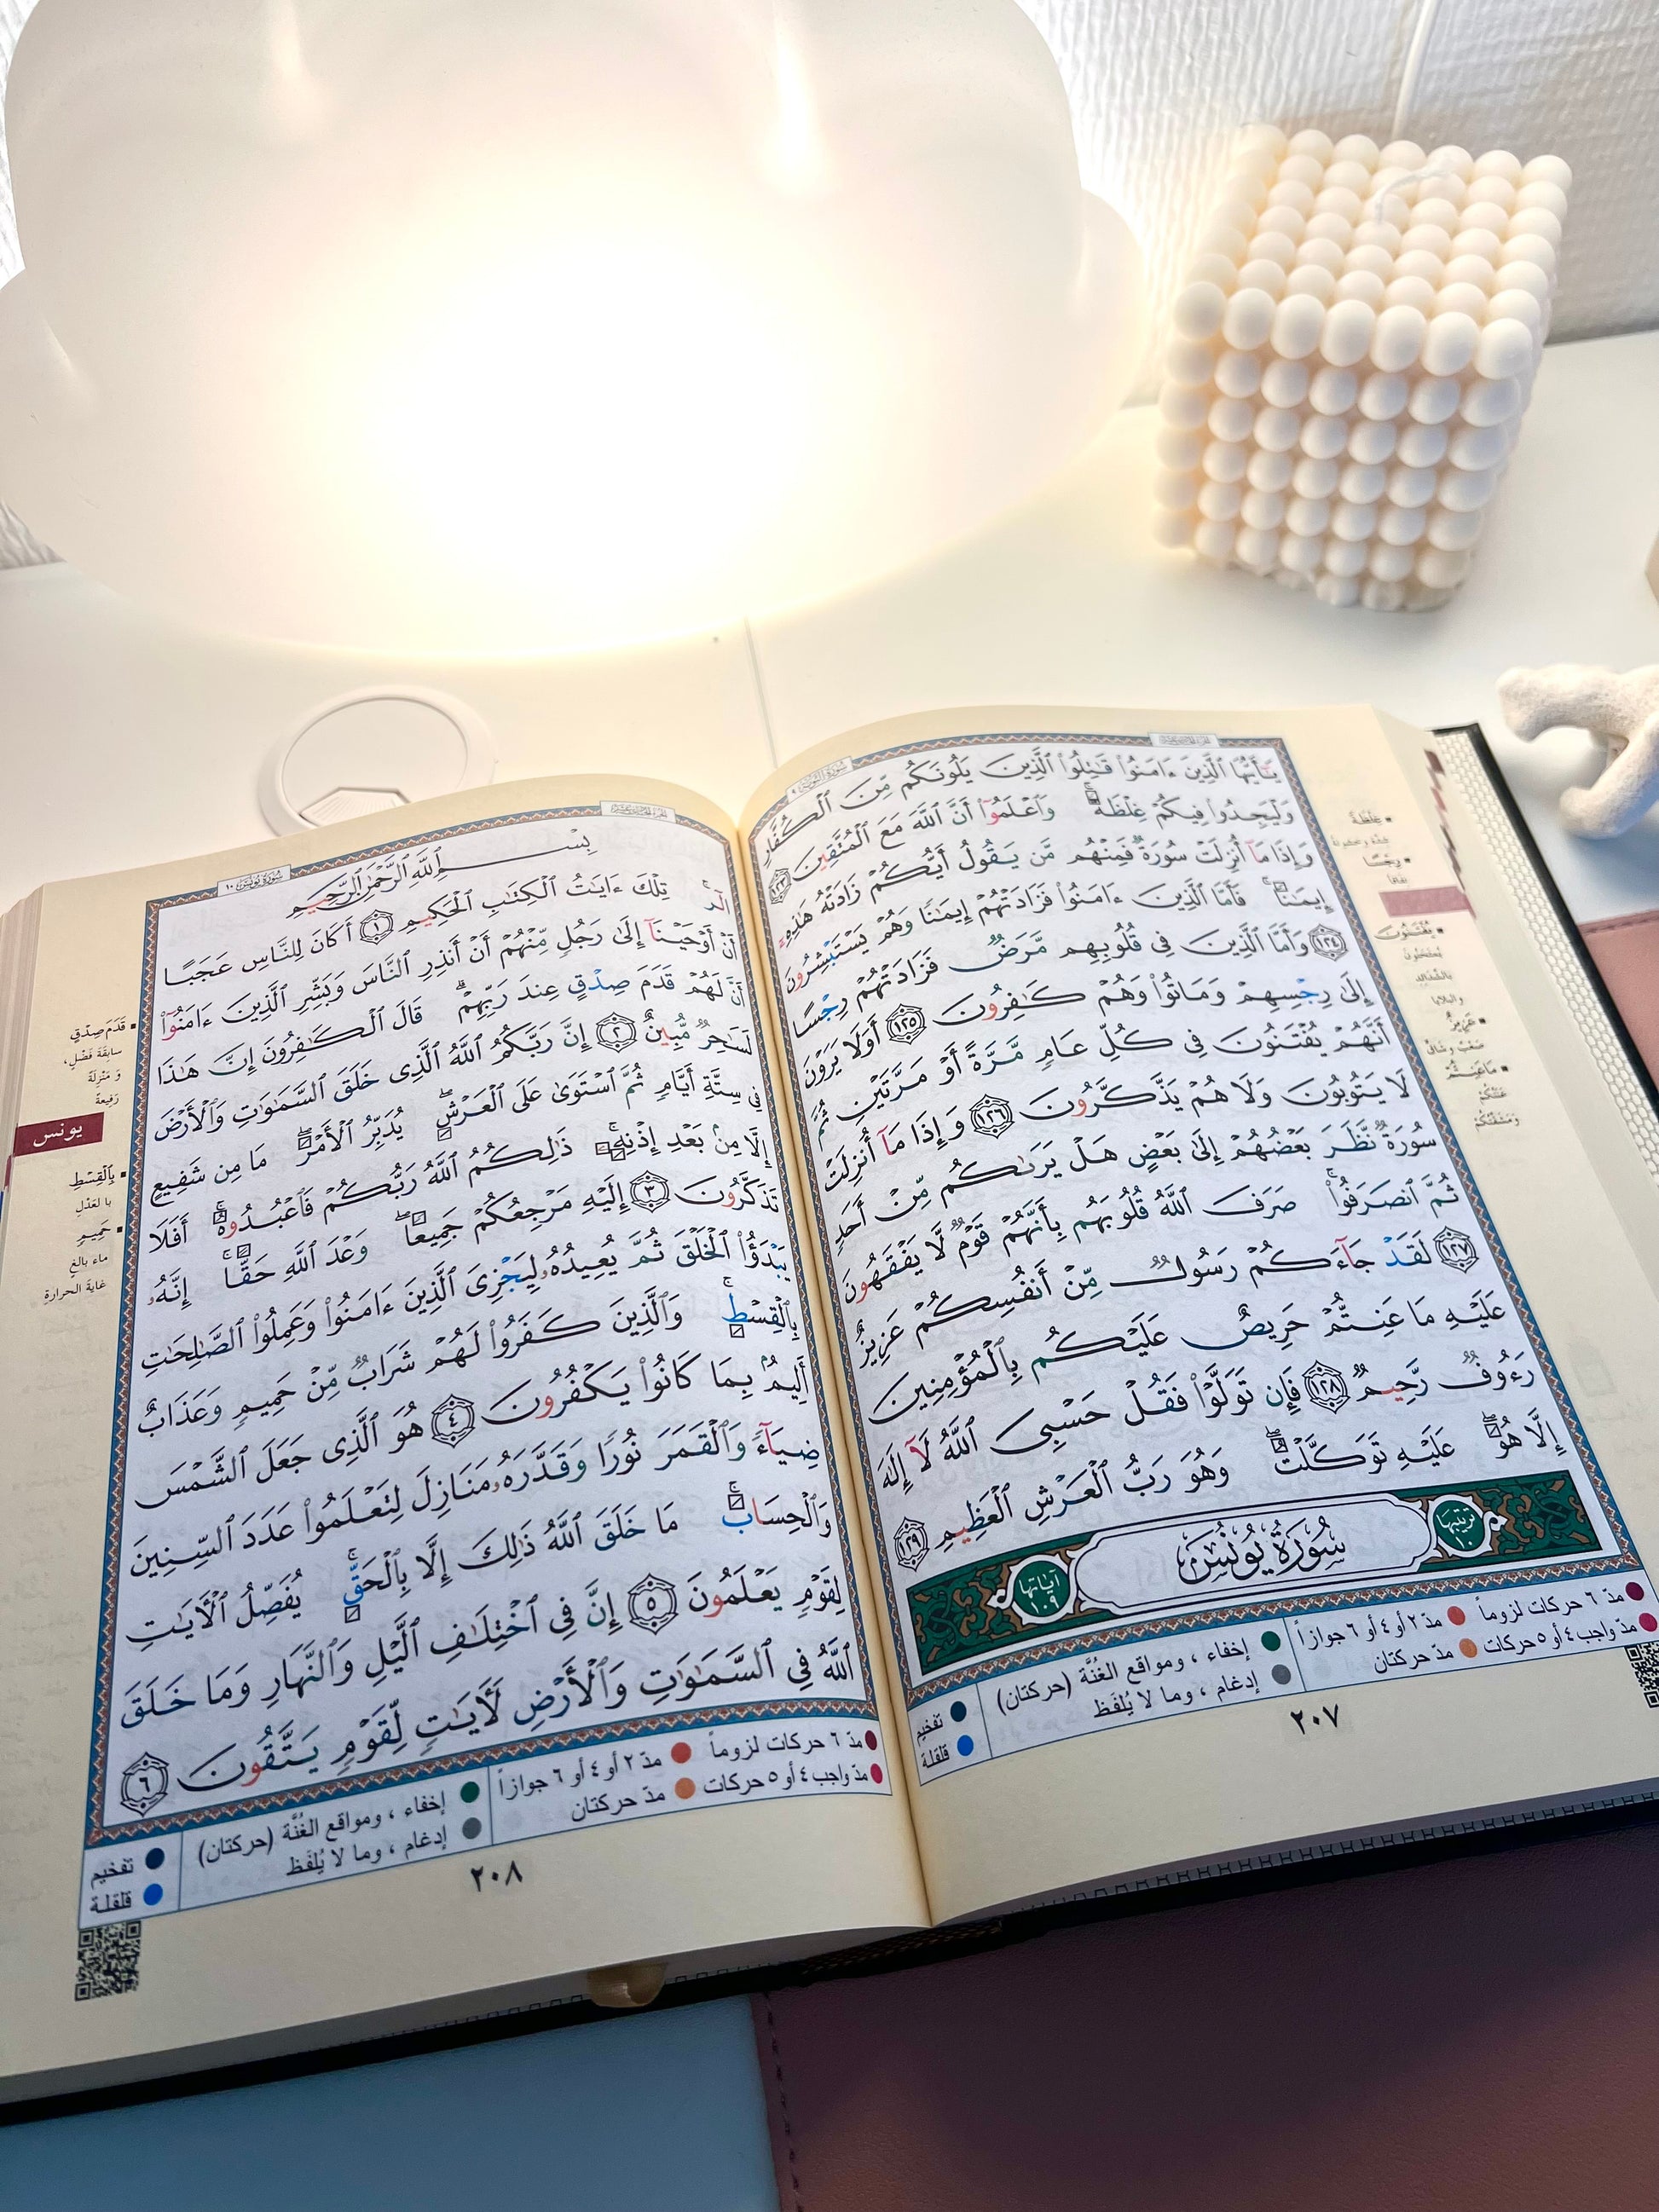 سورة التوبة ٩
يَٰٓأَيُّهَا ٱلَّذِينَ ءَامَنُوا۟ قَٰتِلُوا۟ ٱلَّذِينَ يَلُونَكُم مِّنَ ٱلْكُفَّارِ
وَلْيَجِدُوا۟ فِيكُمْ غِلْظَةً ۚ وَٱعْلَمُوٓا۟ أَنَّ ٱللَّهَ مَعَ ٱلْمُتَّقِينَ ١٢٣
وَإِذَا مَآ أُنزِلَتْ سُورَةٌ فَمِنْهُم مَّن يَقُولُ أَيُّكُمْ زَادَتْهُ هَٰذِهِۦٓ
إِيمَٰنًا ۚ فَأَمَّا ٱلَّذِينَ ءَامَنُوا۟ فَزَادَتْهُمْ إِيمَٰنًا وَهُمْ يَسْتَبْشِرُونَ
١٢٤ وَأَمَّا ٱلَّذِينَ فِى قُلُوبِهِم مَّرَضٌ فَزَادَتْهُمْ رِجْسًا
إِلَىٰ رِجْسِهِمْ وَمَاتُوا۟ وَهُمْ كَٰفِرُونَ ١٢٥ أَوَلَا يَرَوْنَ
أَنَّهُمْ يُفْتَنُونَ فِى كُلِّ عَامٍ مَّرَّةً أَوْ مَرَّتَيْنِ ثُمَّ
لَا يَتُوبُونَ وَلَا هُمْ يَذَّكَّرُونَ ١٢٦ وَإِذَا مَآ أُنزِلَتْ
سُورَةٌ نَّظَرَ بَعْضُهُمْ إِلَىٰ بَعْضٍ هَلْ يَرَىٰكُم مِّنْ أَحَدٍ
ثُمَّ ٱنصَرَفُوا۟ ۚ صَرَفَ ٱللَّهُ قُلُوبَهُم بِأَنَّهُمْ قَوْمٌ لَّا يَفْقَهُونَ
١٢٧ لَقَدْ جَآءَكُمْ رَسُولٌ مِّنْ أَنفُسِكُمْ عَزِيزٌ
عَلَيْهِ مَا عَنِتُّمْ حَرِيصٌ عَلَيْكُم بِٱلْمُؤْمِنِينَ
رَءُوفٌ رَّحِيمٌ ١٢٨ فَإِن تَوَلَّوْا۟ فَقُلْ حَسْبِىَ ٱللَّهُ لَآ إِلَٰهَ
إِلَّا هُوَ ۖ عَلَيْهِ تَوَكَّلْتُ ۖ وَهُوَ رَبُّ ٱلْعَرْشِ ٱلْعَظِيمِ ١٢٩
ترتيبها ١٠ سُورَةُ يُونُسَ آياتها ١٠٩
مدّ ٦ حركات لزوماً مدّ ٢ أو ٤ أو ٦ جوازاً
مدّ واجب ٤ أو ٥ حركات مدّ حركتان
إخفاء ، ومواقع الغُنَّة (حركتان)
إدغام ، وما لا يُلفَظ
تفخيم
قلقلة
٢٠٧
غِلْظَةً
رِجْسًا
يُفْتَنُونَ
عَزِيزٌ
مَا عَنِتُّمْ
سورة يونس ١٠
بِسْمِ ٱللَّهِ ٱلرَّحْمَٰنِ ٱلرَّحِيمِ
الٓر ۚ تِلْكَ ءَايَٰتُ ٱلْكِتَٰبِ ٱلْحَكِيمِ ١ أَكَانَ لِلنَّاسِ عَجَبًا
أَنْ أَوْحَيْنَآ إِلَىٰ رَجُلٍ مِّنْهُمْ أَنْ أَنذِرِ ٱلنَّاسَ وَبَشِّرِ ٱلَّذِينَ ءَامَنُوٓا۟
أَنَّ لَهُمْ قَدَمَ صِدْقٍ عِندَ رَبِّهِمْ ۗ قَالَ ٱلْكَٰفِرُونَ إِنَّ هَٰذَا
لَسَٰحِرٌ مُّبِينٌ ٢ إِنَّ رَبَّكُمُ ٱللَّهُ ٱلَّذِى خَلَقَ ٱلسَّمَٰوَٰتِ وَٱلْأَرْضَ
فِى سِتَّةِ أَيَّامٍ ثُمَّ ٱسْتَوَىٰ عَلَى ٱلْعَرْشِ ۖ يُدَبِّرُ ٱلْأَمْرَ ۖ مَا مِن شَفِيعٍ
إِلَّا مِنۢ بَعْدِ إِذْنِهِۦ ۚ ذَٰلِكُمُ ٱللَّهُ رَبُّكُمْ فَٱعْبُدُوهُ ۚ أَفَلَا
تَذَكَّرُونَ ٣ إِلَيْهِ مَرْجِعُكُمْ جَمِيعًا ۖ وَعْدَ ٱللَّهِ حَقًّا ۚ إِنَّهُۥ
يَبْدَؤُا۟ ٱلْخَلْقَ ثُمَّ يُعِيدُهُۥ لِيَجْزِىَ ٱلَّذِينَ ءَامَنُوا۟ وَعَمِلُوا۟ ٱلصَّٰلِحَٰتِ
بِٱلْقِسْطِ ۚ وَٱلَّذِينَ كَفَرُوا۟ لَهُمْ شَرَابٌ مِّنْ حَمِيمٍ وَعَذَابٌ
أَلِيمٌۢ بِمَا كَانُوا۟ يَكْفُرُونَ ٤ هُوَ ٱلَّذِى جَعَلَ ٱلشَّمْسَ
ضِيَآءً وَٱلْقَمَرَ نُورًا وَقَدَّرَهُۥ مَنَازِلَ لِتَعْلَمُوا۟ عَدَدَ ٱلسِّنِينَ
وَٱلْحِسَابَ ۚ مَا خَلَقَ ٱللَّهُ ذَٰلِكَ إِلَّا بِٱلْحَقِّ ۚ يُفَصِّلُ ٱلْءَايَٰتِ
لِقَوْمٍ يَعْلَمُونَ ٥ إِنَّ فِى ٱخْتِلَٰفِ ٱلَّيْلِ وَٱلنَّهَارِ وَمَا خَلَقَ
ٱللَّهُ فِى ٱلسَّمَٰوَٰتِ وَٱلْأَرْضِ لَءَايَٰتٍ لِّقَوْمٍ يَتَّقُونَ ٦
مدّ ٦ حركات لزوماً مدّ ٢ أو ٤ أو ٦ جوازاً
مدّ واجب ٤ أو ٥ حركات مدّ حركتان
إخفاء ، ومواقع الغُنَّة (حركتان)
إدغام ، وما لا يُلفَظ
تفخيم
قلقلة
٢٠٨
قَدَمَ صِدْقٍ
سابقة فضل،
و منزلة
رفيعة
يونس
بِالْقِسْطِ
بالعدل
حَمِيمٍ
ماء بالغ
غاية الحرارة